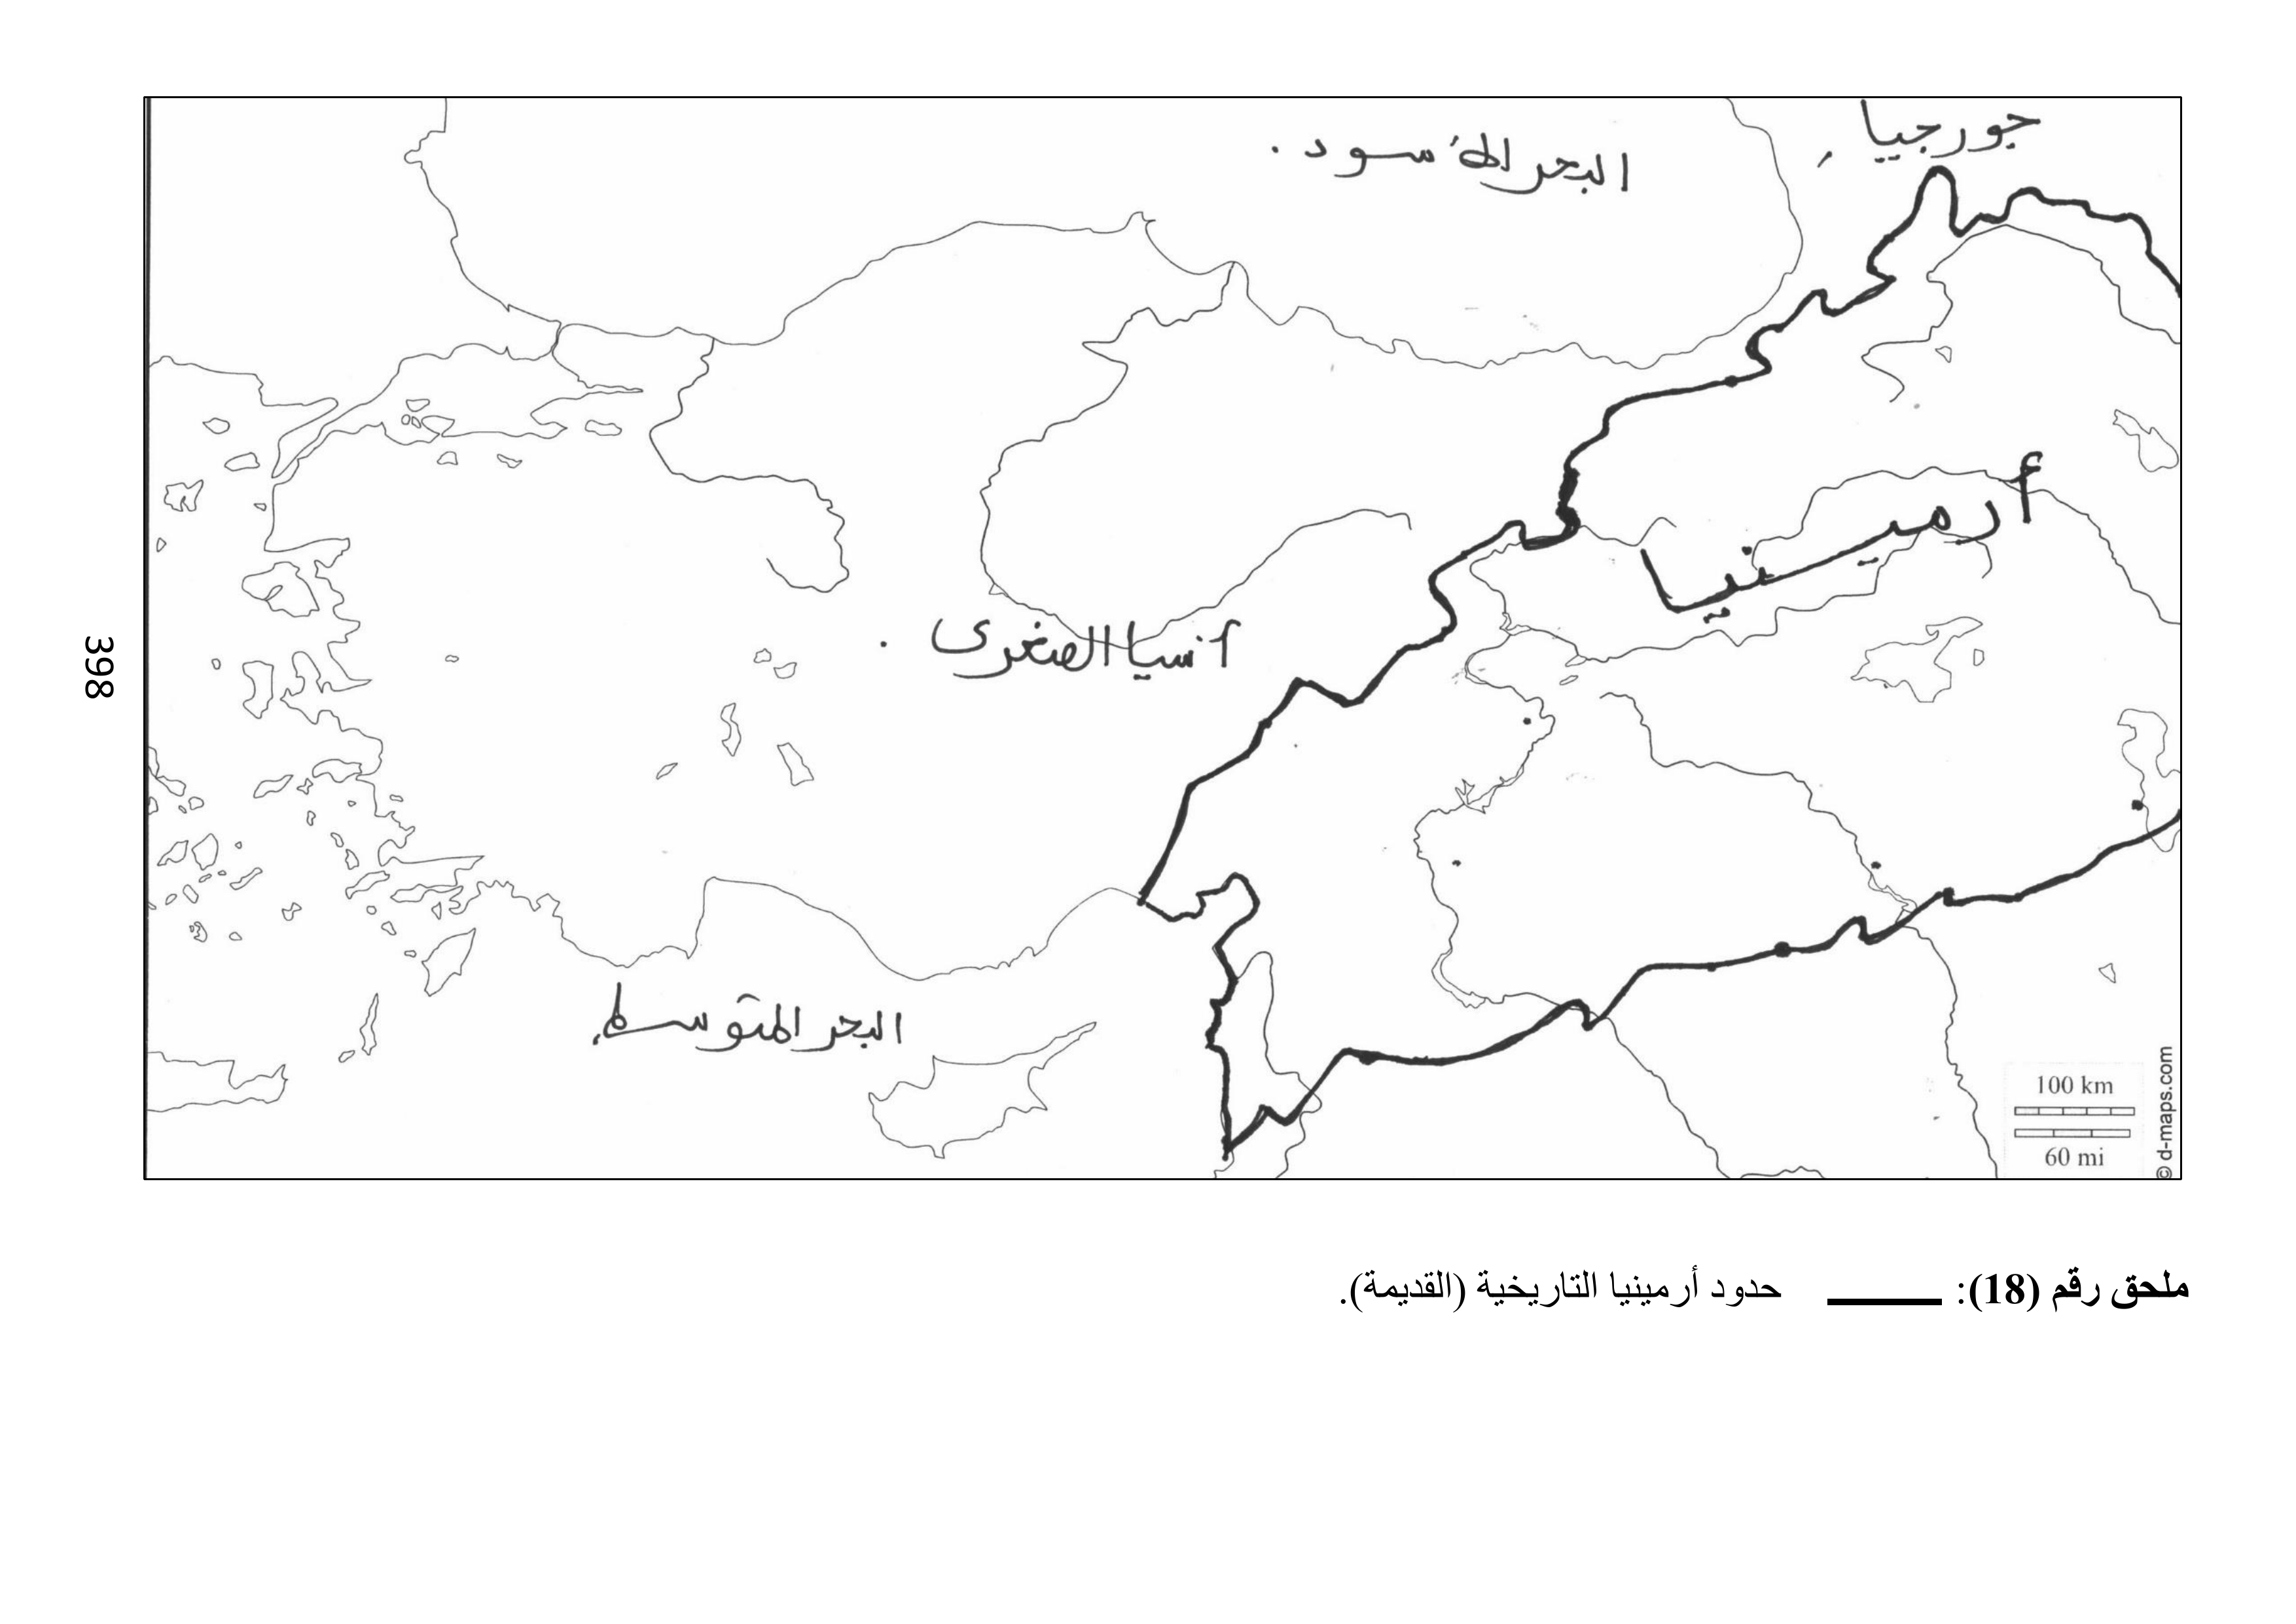 جورجيا
البحر الأسود.
أرمينيا
آسيا الصغرى.
البحر المتوسط.
100 km
60 mi
© d-maps.com
ملحق رقم (18): حدود أرمينيا التاريخية (القديمة).
398